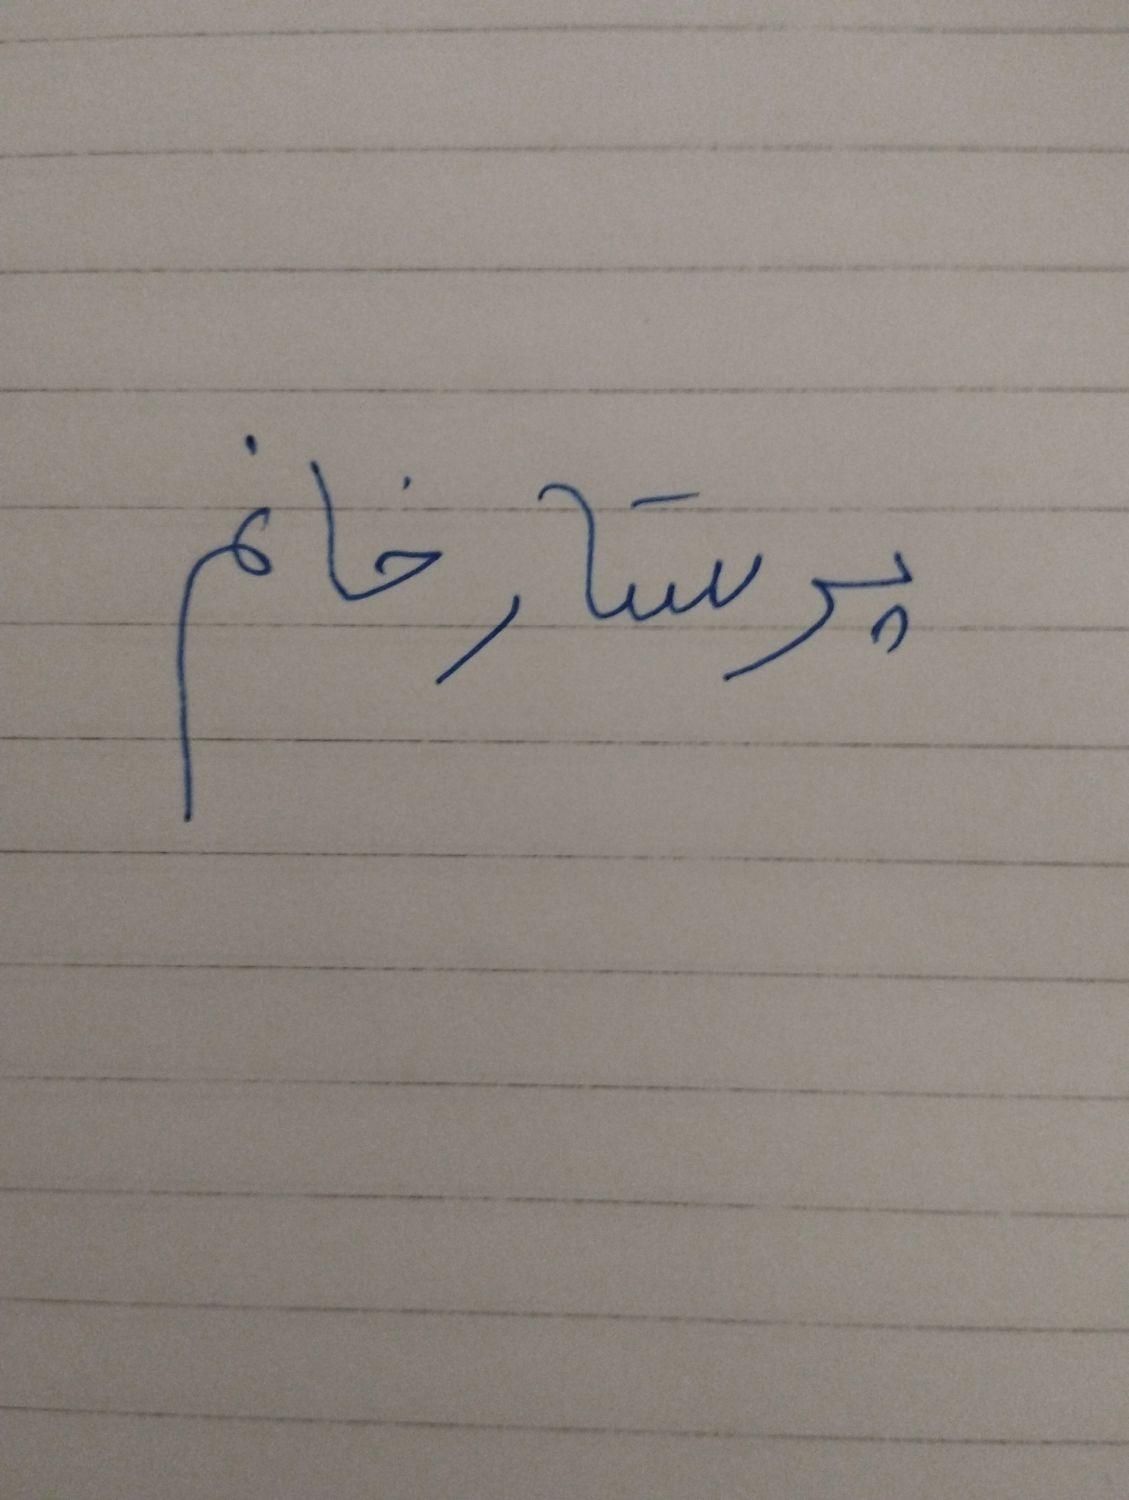 پرستار خانم